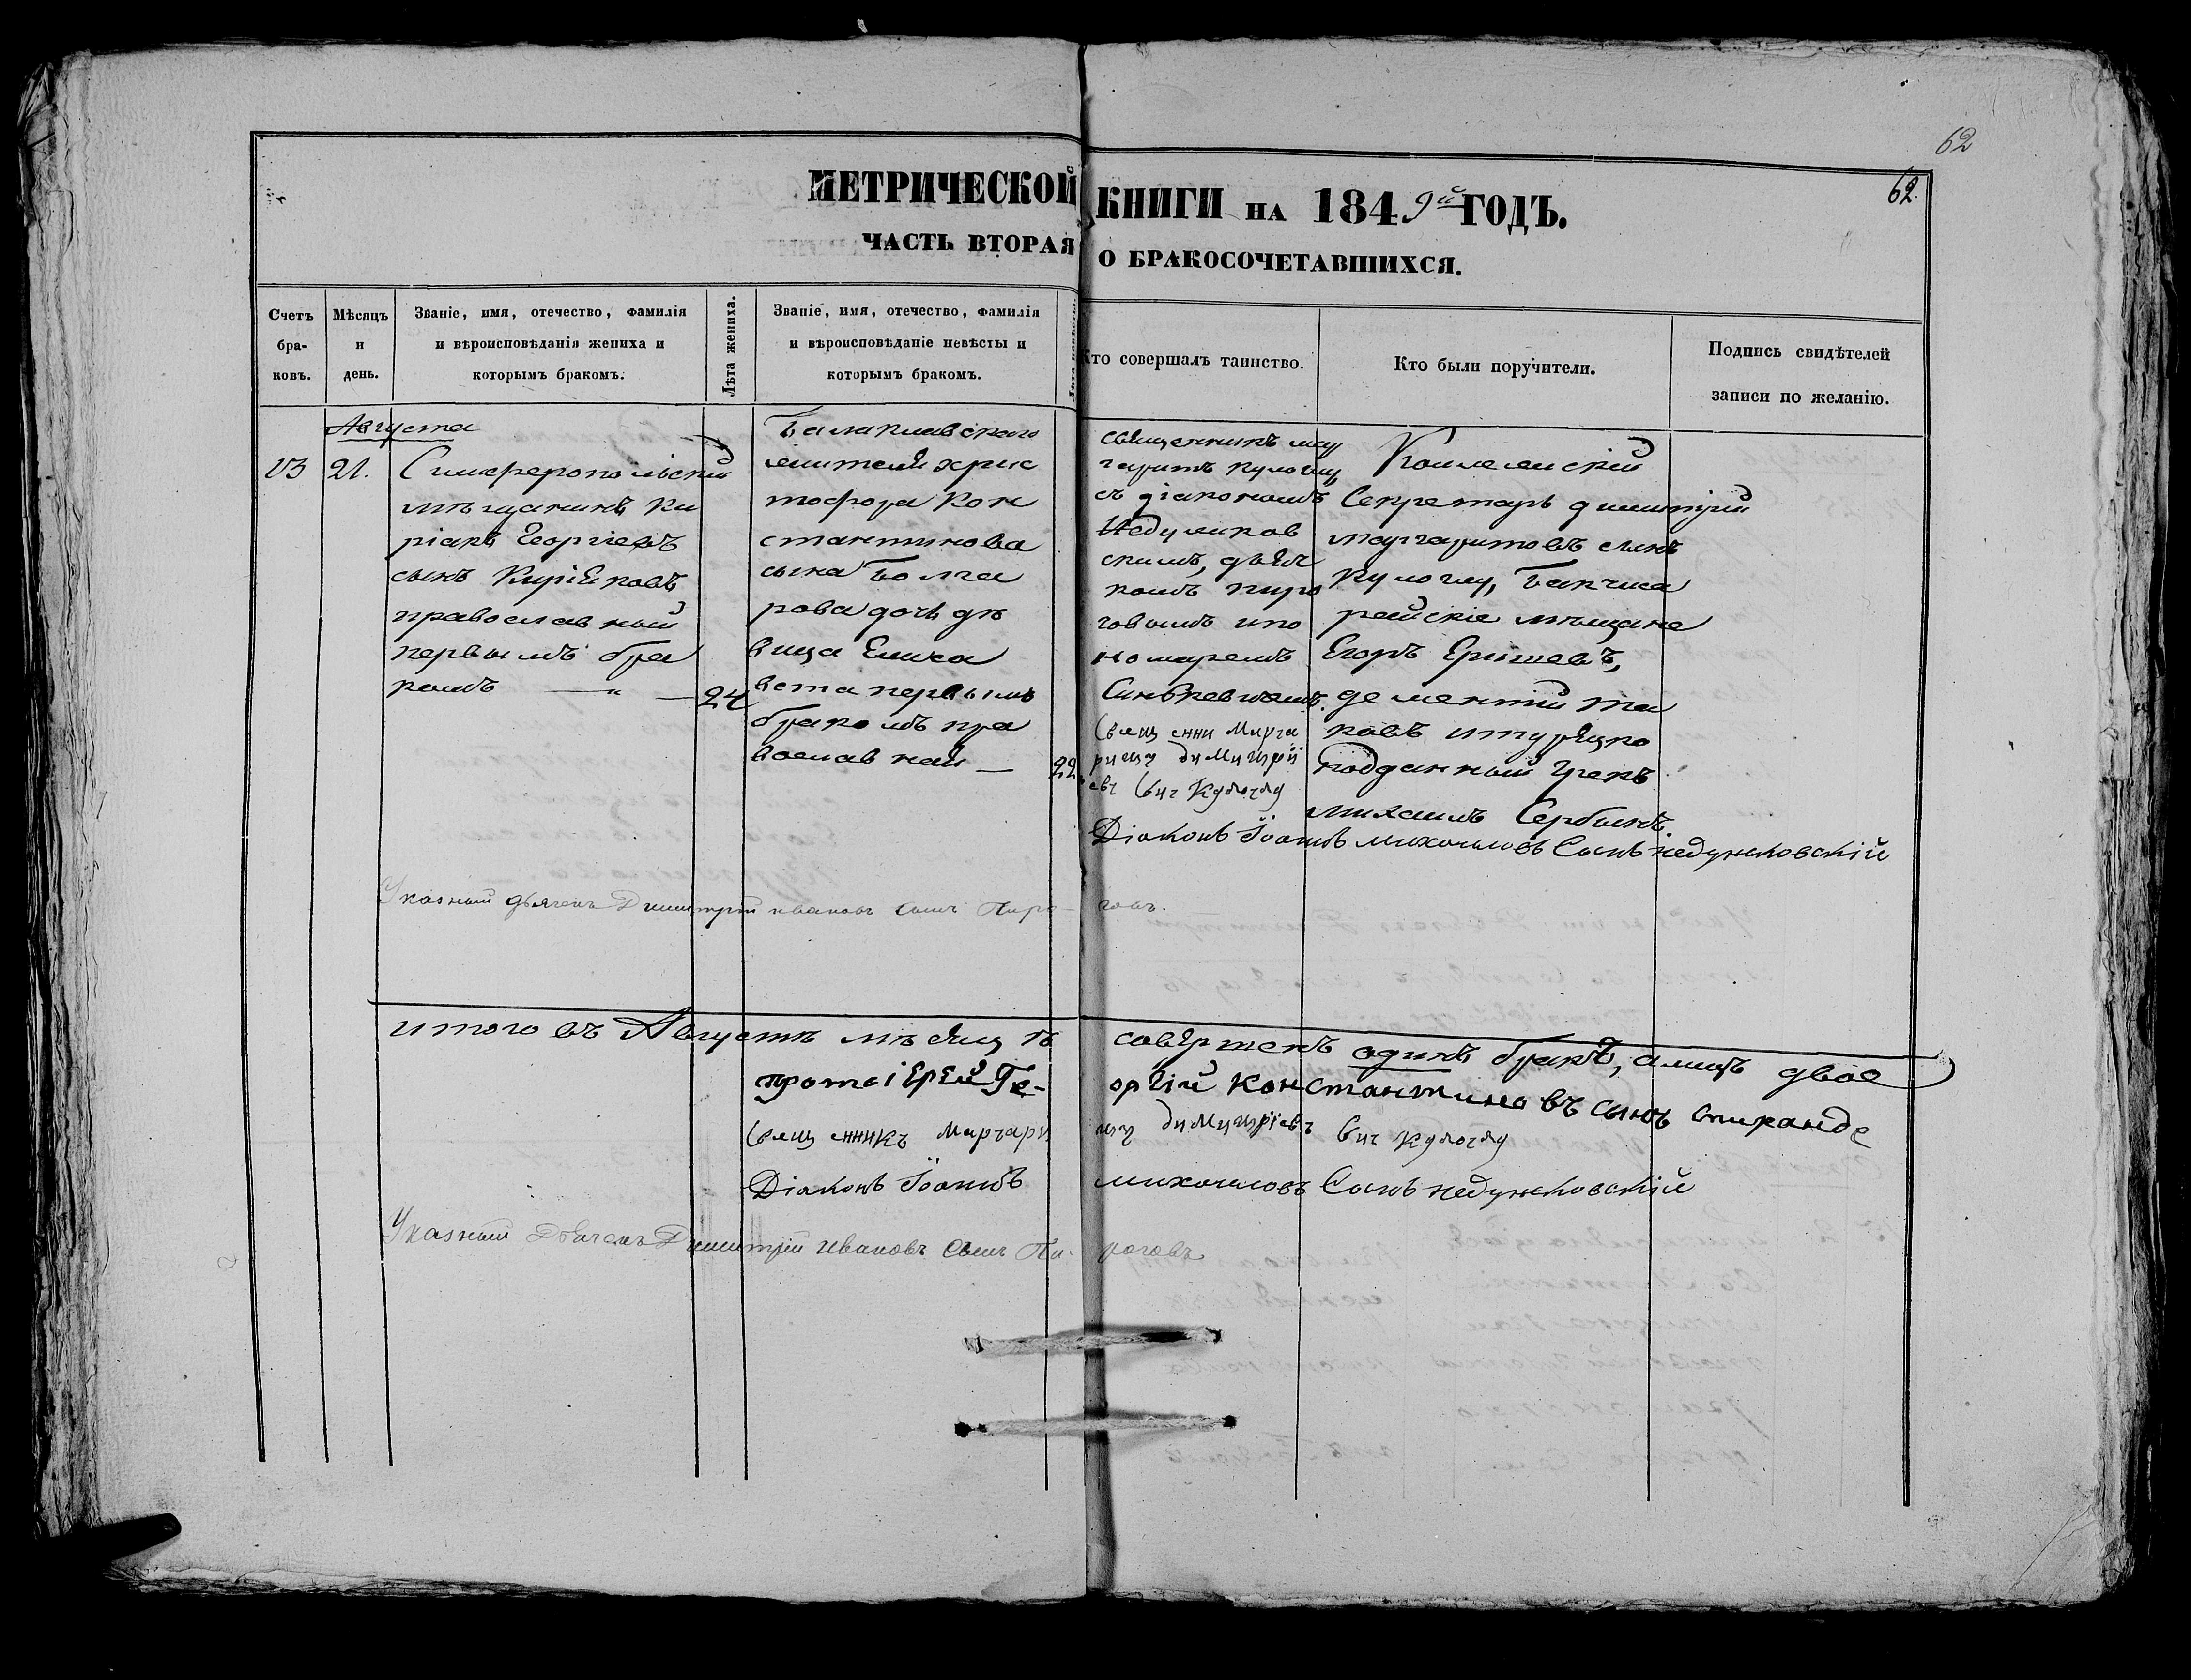 62
62.
МЕТРИЧЕСКОЙ КНИГИ НА 1849й ГОДЪ.
ЧАСТЬ ВТОРАЯ О БРАКОСОЧЕТАВШИХСЯ.
Счетъ
бра-
ковъ.
Мѣсяцъ
и
день.
Званіе, имя, отечество, фамилія
и вѣроисповѣданія жениха и
которымъ бракомъ.
Лѣта жениха.
Званіе, имя, отечество, фамилія
и вѣроисповѣданіе невѣсты и
которымъ бракомъ.
Лѣта невѣсты.
Кто совершалъ таинство.
Кто были поручители.
Подпись свидѣтелей
записи по желанію.
Августа
21.
Симферопольскій
мѣщанинъ Ки
ріакъ Георгіевъ
сынъ Киріяковъ
православный
первымъ бра
комъ — " —
24
Балаклавскаго
жителя хрис
тофора Кон
стантинова
сына Болга
рова дочь дѣ
вица Елиса
вета первымъ
бракомъ пра
вославная —
22.
священникъ мар
гаритъ Кулоглу,
съ діакономъ
Недулков
скимъ, дьяч
комъ Пиро
говымъ и по
номаремъ
Синькевичемъ.
Священни Марга
ритъ Димитрії
евъ Сынъ Кулоглу
Коллежскій
Секретарь димитрій
маргаритовъ сынъ
Кулоглу, Бакчиса
райскіе мѣщане
Егоръ
дементій
ковъ и турецко
подданный Грекъ
михаилъ Сербинъ.
Діаконъ Іоаннъ михаиловъ Сынъ недулковскій
Указный дьячекъ Димитрій ивановъ сынъ Пиро-говъ.
итого въ Августѣ мѣсяцѣ совершенъ одинъ бракъ, а лицъ двое
протоіерей Ге-оргій Константиновъ сынъ спиранде
Священникъ Маргаритъ Димитріевъ Сынъ Кулоглу
Діаконъ Іоаннъ михаиловъ Сынъ недулковскій
Указный Дьячекъ Димитрій Ивановъ Сынъ Пи-роговъ